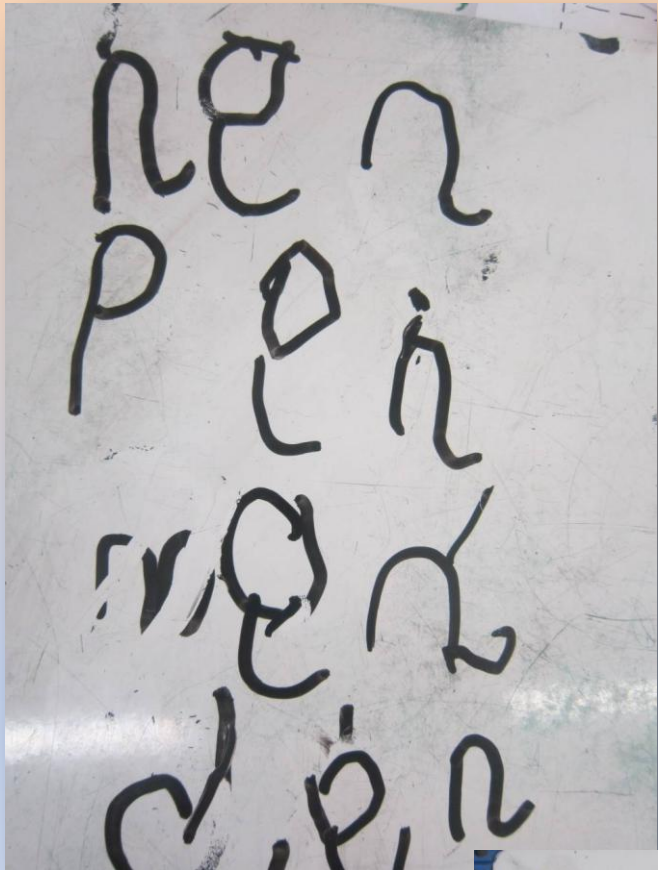 nen
pen
men
den